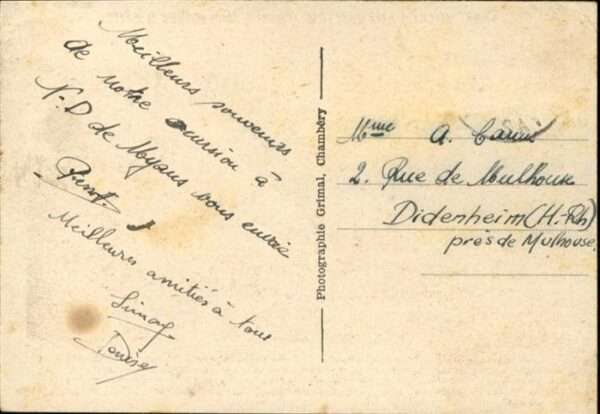 Meilleurs souvenirs
de notre excursion à
N.D de Myans vous envoie
Meilleures amitiés à tous
Photographie Grimal, Chambéry
Mme A.
2. Rue de Mulhouse
Didenheim (H.-Rh)
près de Mulhouse.